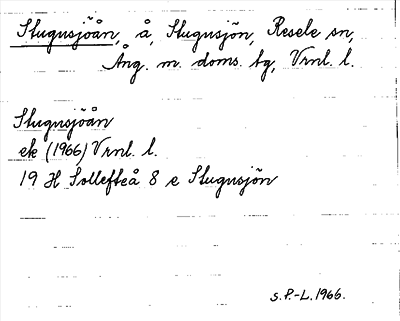 Stugusjöån, å, Stugusjön, Resele sn,
Ång. m. doms. tg, Vrnl. l.
Stugusjöån
ek (1966) Vrnl. l.
19 H Sollefteå 8 e Stugusjön
S.P.-L. 1966.